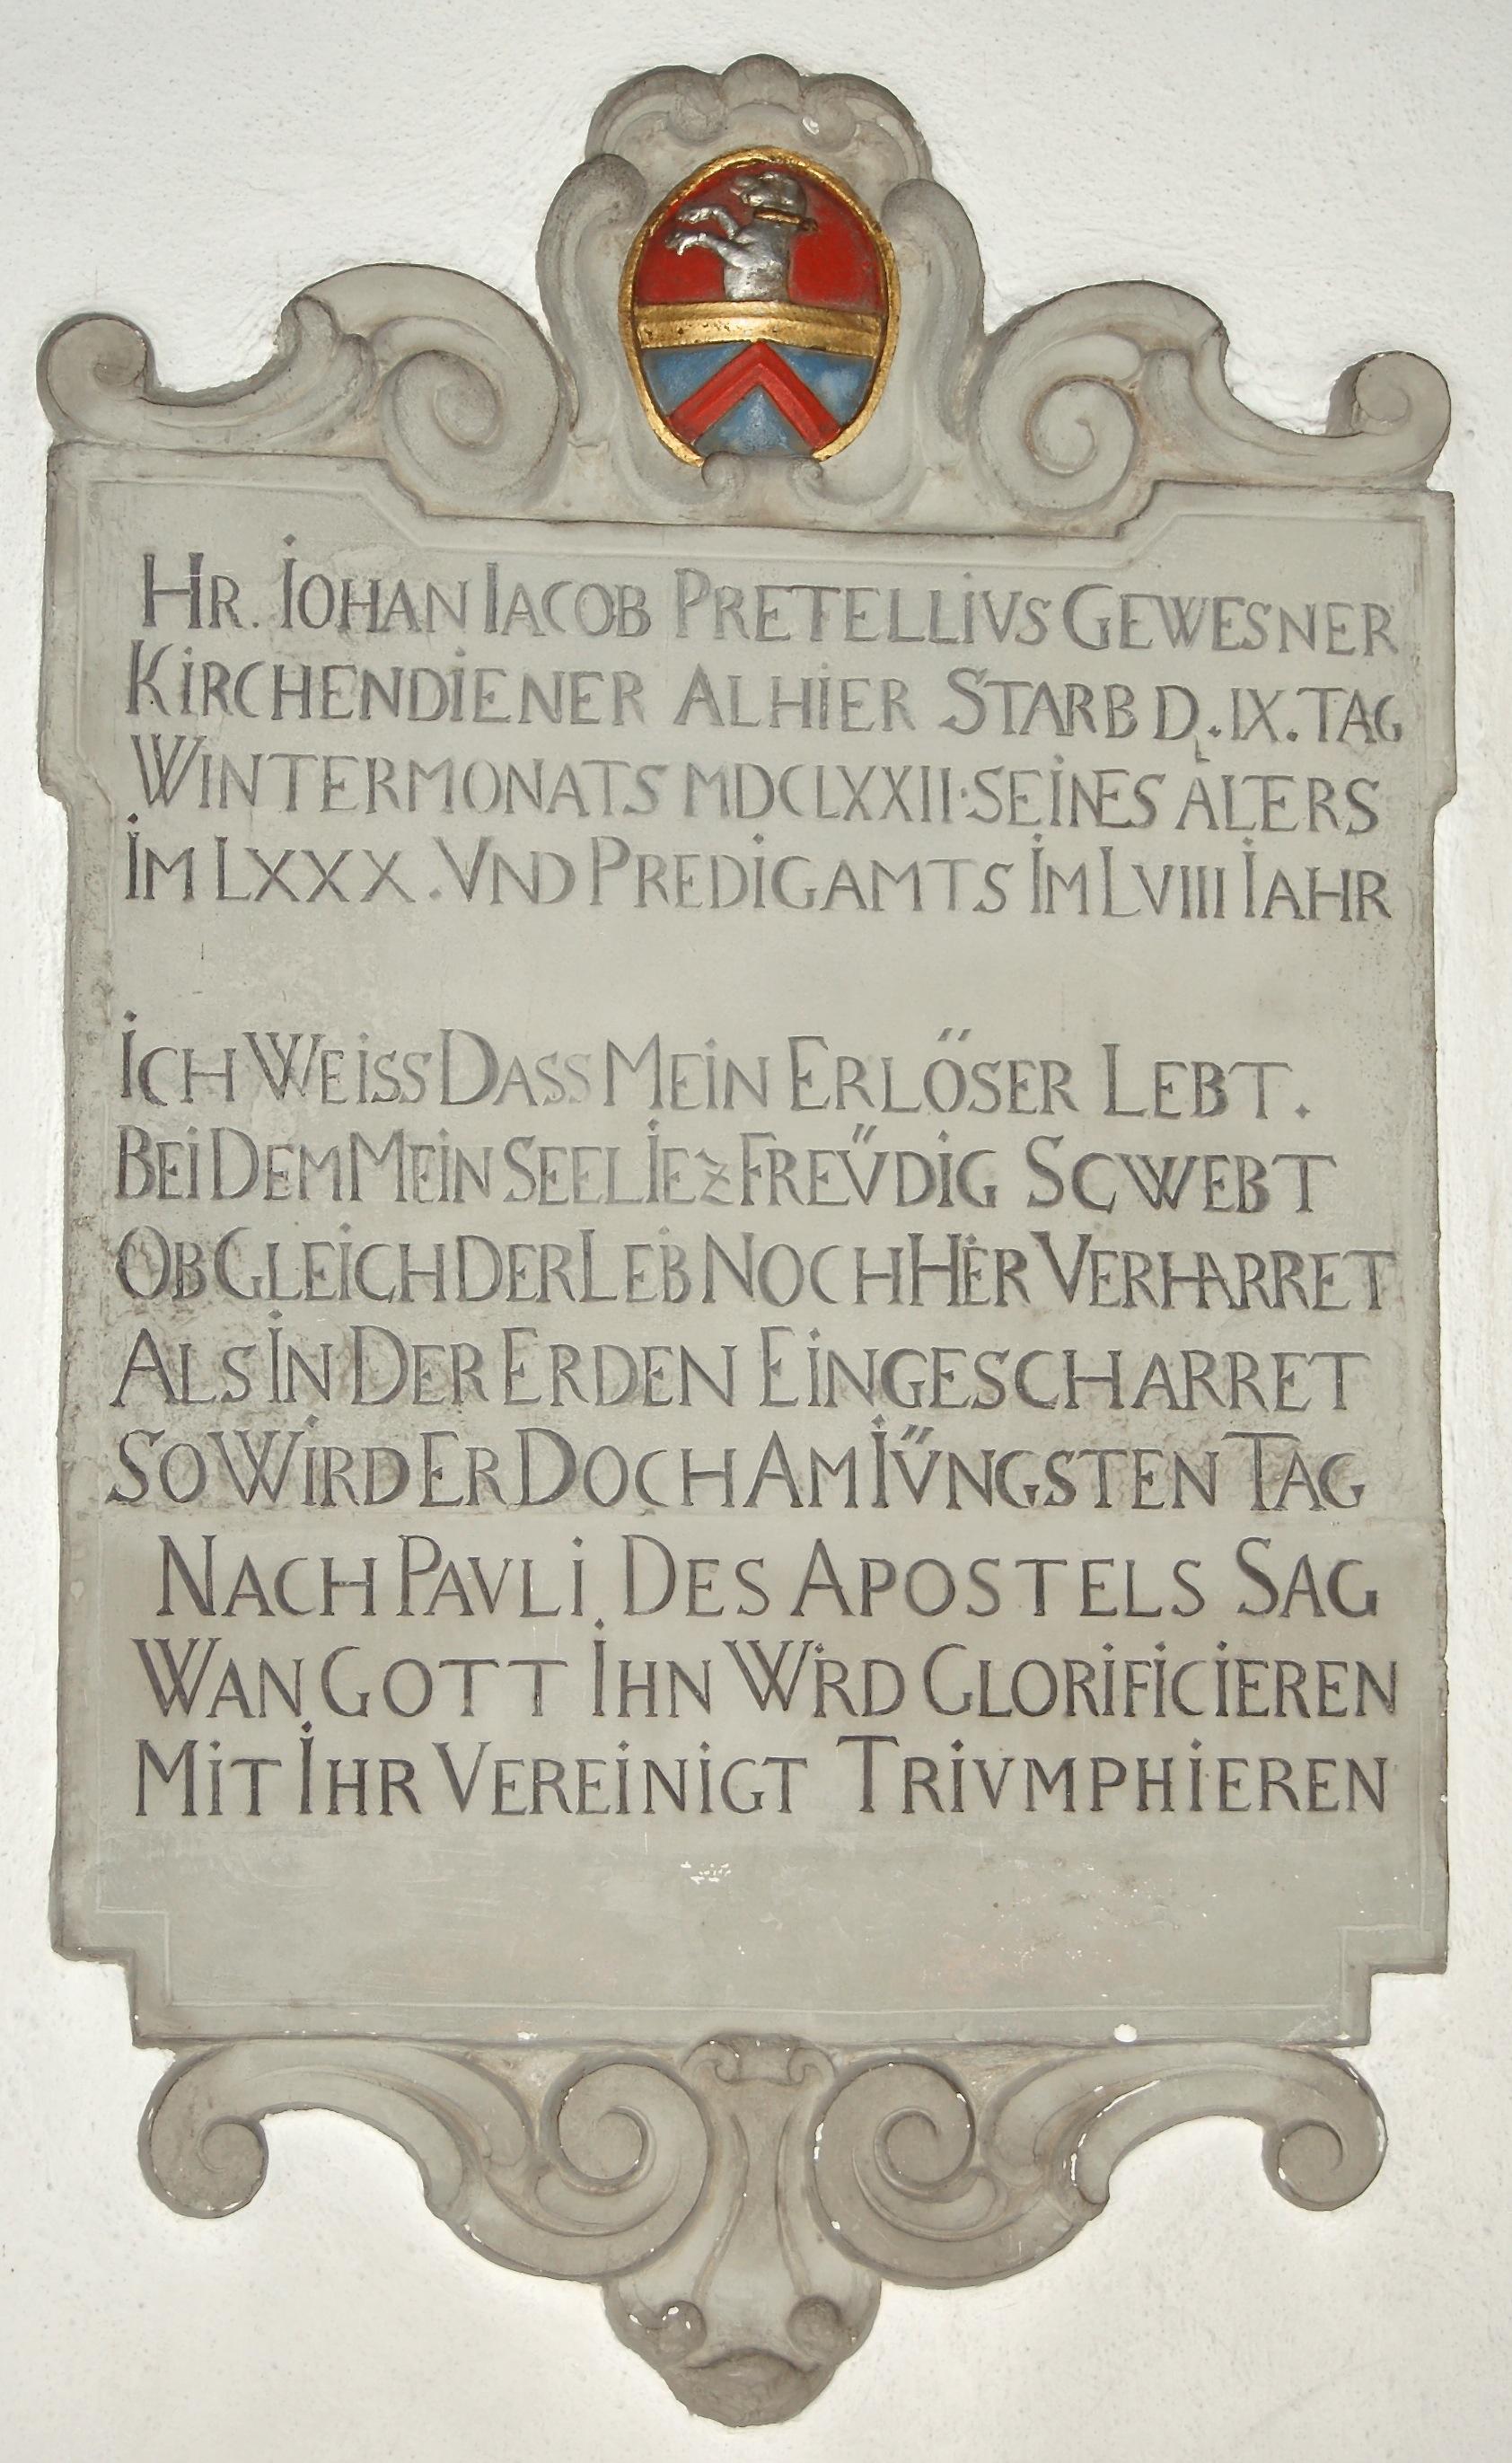 HR. IOHAN IACOB PRETELLIVS GEWESNER
KIRCHENDIENER ALHIER STARB D. IX. TAG
WINTERMONATS MDCLXXII. SEINES ALTERS
IM LXXX. VND PREDIGAMTS IM LVIII IAHR
ICH WEISS DASS MEIN ERLÖSER LEBT.
BEI DEM MEIN SEEL IEZ FREV̈DIG SCWEBT
OB GLEICH DER LEIB NOCH HIER VERHARRET
ALS IN DER ERDEN EINGESCHARRET
SO WIRD ER DOCH AM IV̈NGSTEN TAG
NACH PAVLI DES APOSTELS SAG
WAN GOTT IHN WIRD GLORIFICIEREN
MIT IHR VEREINIGT TRIVMPHIEREN